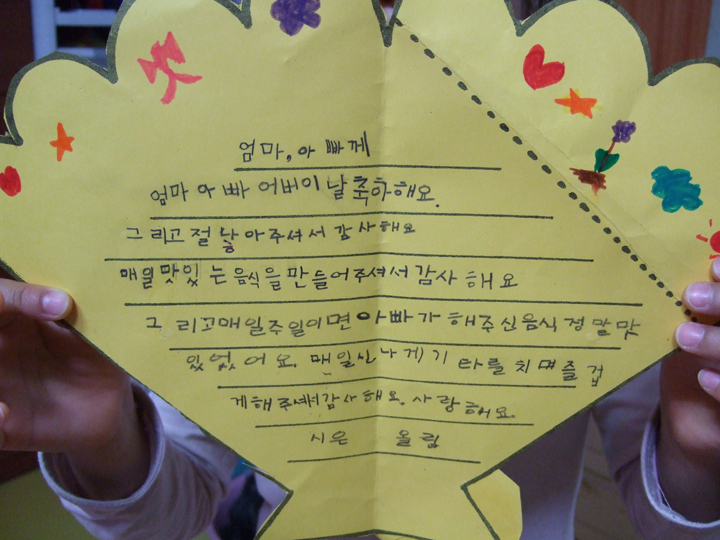 엄마, 아빠께
엄마 아빠 어버이 날 축하해요.
그리고 절 낳아주셔서 감사해요
매일맛있는 음식을 만들어주셔서 감사해요
그리고매일주일이면 아빠가 해주신음식정말맛
있었어요. 매일신나게기타를치며즐겁
게해주셔서감사해요. 사랑해요.
시은 올림